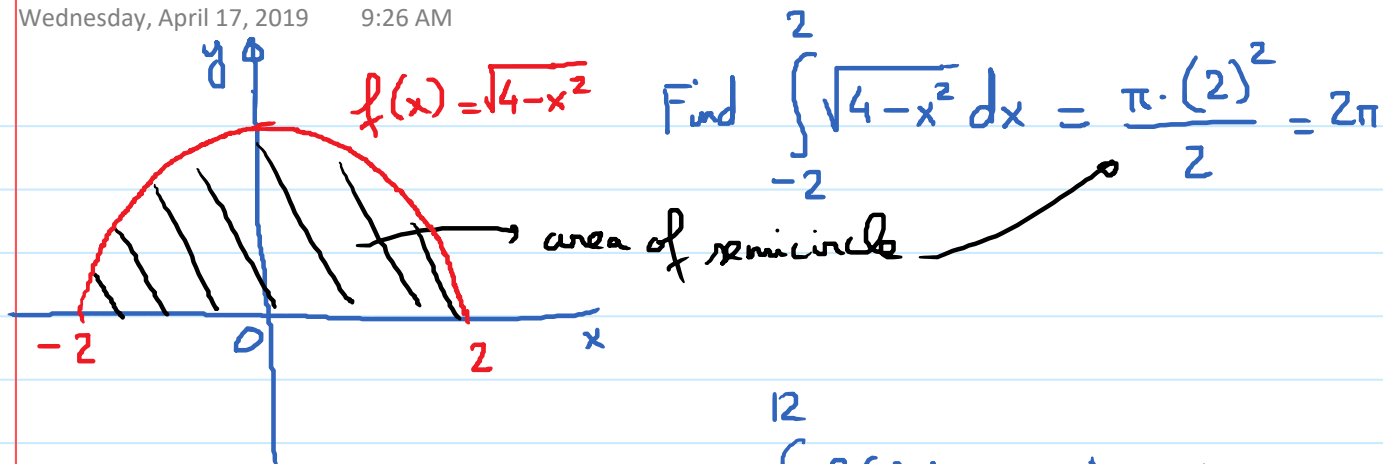 Wednesday, April 17, 2019 9:26 AM
y
f(x) = √4-x²
Find ∫_{-2}^{2} √4-x² dx = π·(2)²/2 = 2π
area of semicircle
-2 0 2 x
12